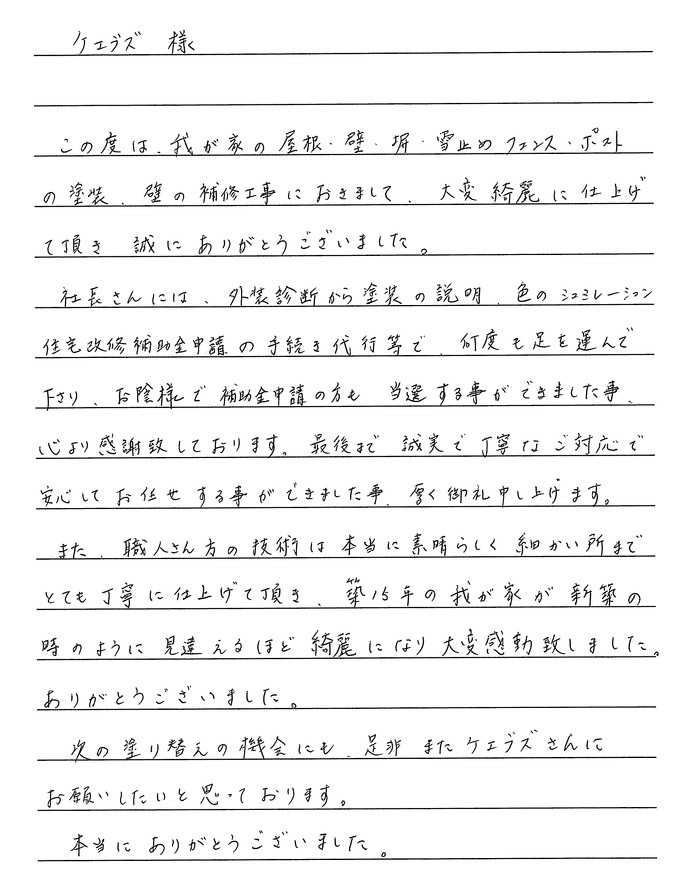 ケエラズ 様
この度は、我が家の屋根・壁・塀・雪止めフェンス・ポスト
の塗装、壁の補修工事におきまして、大変綺麗に仕上げ
て頂き 誠にありがとうございました。
社長さんには、外装診断から塗装の説明、色のシュミレーション
住宅改修補助金申請の手続き代行等で、何度も足を運んで
下さり、お陰様で補助金申請の方も 当選する事ができました事、
心より感謝致しております。最後まで 誠実で丁寧なご対応で
安心してお任せする事ができました事、厚く御礼申し上げます。
また、職人さん方の技術は本当に素晴らしく 細かい所まで
とても丁寧に仕上げて頂き、築15年の我が家が新築の
時のように見違えるほど綺麗になり大変感動致しました。
ありがとうございました。
次の塗り替えの機会にも、是非 またケエラズさんに
お願いしたいと思っております。
本当にありがとうございました。